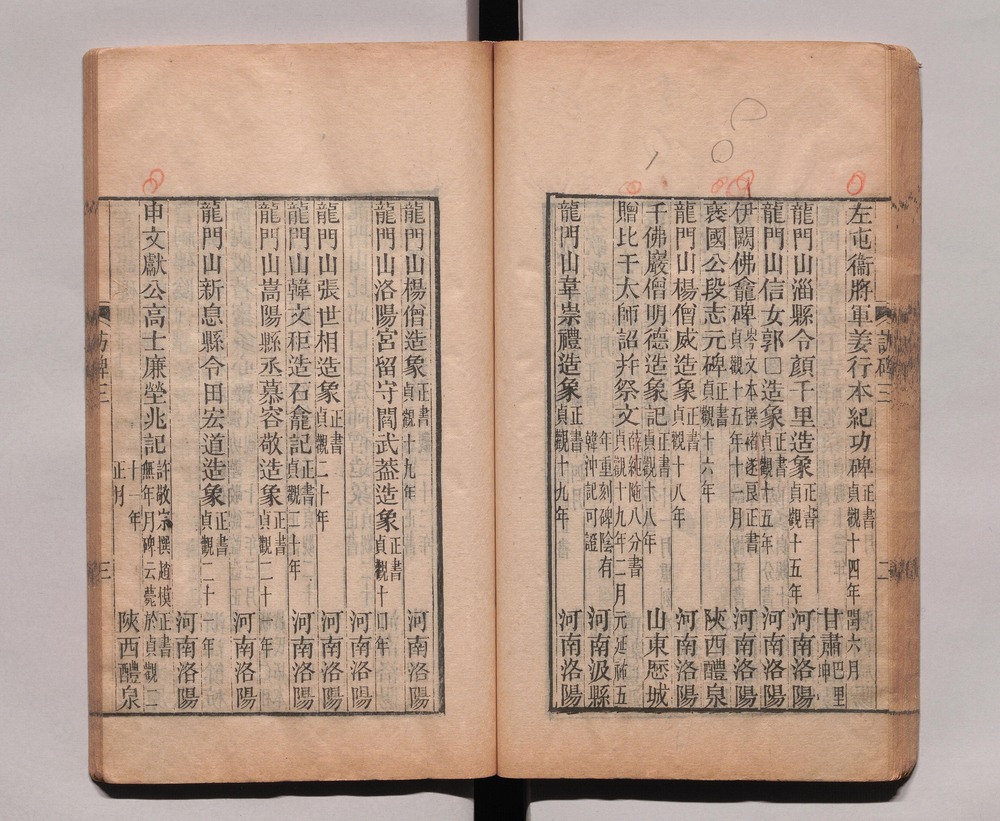 左屯衞將軍姜行本紀功碑 正書 貞觀十四年閏六月
甘肅 巴里坤
龍門山淄縣令顏千里造象 正書 貞觀十五年 河南洛陽
龍門山信女郭□造象 正書 貞觀十五年 河南洛陽
伊闕佛龕碑 岑文本撰褚遂良正書 貞觀十五年十一月 河南洛陽
襃國公段志元碑 正書 貞觀十六年 陝西醴泉
龍門山楊僧威造象 正書 貞觀十八年 河南洛陽
千佛巖僧明德造象記 正書 貞觀十八年 山東歷城
贈比干太師詔幷祭文 薛純陁八分書 貞觀十九年二月元延祐五
年重刻碑陰有韓沖記可證 河南汲縣
龍門山韋崇禮造象 貞觀十九年 河南洛陽
訪碑三 二
龍門山楊僧造象 正書 貞觀十九年 河南洛陽
龍門山洛陽宮留守閻武蓋造象 正書 貞觀十□年
河南洛陽
龍門山張世相造象 正書 貞觀二十年 河南洛陽
龍門山韓文秬造石龕記 正書 貞觀二十年 河南洛陽
龍門山嵩陽縣丞慕容敬造象 正書 貞觀二十年
河南洛陽
龍門山新息縣令田宏道造象 正書 貞觀二十一年
河南洛陽
申文獻公高士廉塋兆記 許敬宗撰趙模正書 無年月碑云薨於貞觀二
十一年正月 陝西醴泉
訪碑三 三